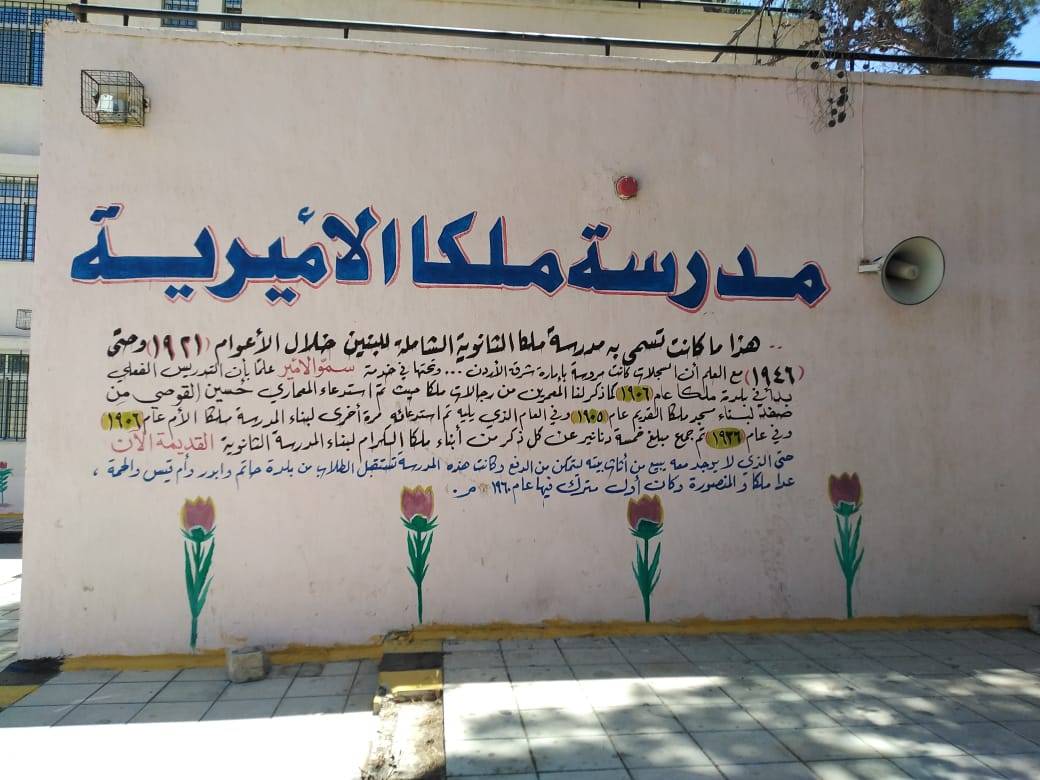 مدرسة ملكا الأميرية
.. هذا ما كانت تسمى به مدرسة ملكا الثانوية الشاملة للبنين خلال الأعوام (١٩٢١) وحتى
(١٩٤٦) مع العلم أن السجلات كانت مروسة بإمارة شرق الأردن ... وتحتها في خدمة سمو الأمير علماً بأن التدريس الفعلي
بدأ في بلدة ملكا عام ١٩٠٦ كما ذكر لنا المعمرين من رجالات ملكا حيث تم استدعاء المعماري حسين القوصي من
صفد لبناء مسجد ملكا القديم عام ١٩٠٥ وفي العام الذي يليه تم استدعائه مرة أخرى لبناء المدرسة ملكا الأم عام ١٩٠٦
وفي عام ١٩٣٦ تم جمع مبلغ خمسة دنانير عن كل ذكر من أبناء ملكا الكرام لبناء المدرسة الثانوية القديمة الآن
حتى الذي لا يوجد معه يبيع من أثاث بيته ليتمكن من الدفع وكانت هذه المدرسة تستقبل الطلاب من بلدة حاتم وابدر وأم قيس والحمة ،
عدا ملكا والمنصورة وكان أول مترك فيها عام ١٩٦٠